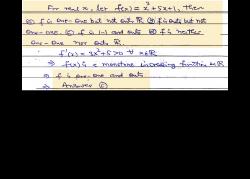 For real x, let f(x) = x³+5x+1, then
(a) f is one-one but not onto R (b) f is onto but not
one-one (c) f is 1-1 and onto (d) f is neither
one-one nor onto R.
∵ f'(x) = 3x²+5>0 ∀ x∈R
⇒ f(x) is a monotone increasing function on R
⇒ f is one-one and onto
⇒ Answer (c)